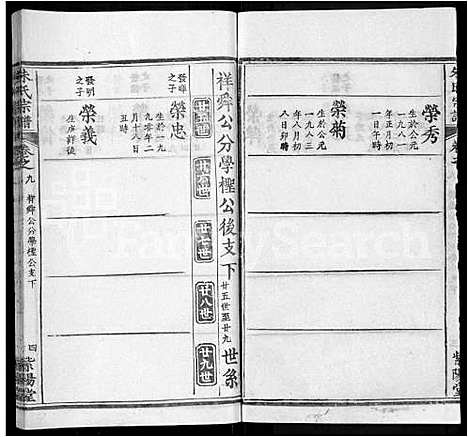 榮秀
生於公元
一九八一
年正月初
一日午時
榮菊
生於公元
一九八三
年三月初
八日卯時
紫陽堂
祥舜公分學樫公後支下
廿五世至廿九
世系
廿五世
廿六世
廿七世
廿八世
廿九世
發暉
之子
榮忠
生於一九
九零年二
月十八日
丑時
發明
之子
榮義
生庚詳後
朱氏宗譜
卷之九
祥舜公分學樫公支下
四
紫陽堂
FamilySearch